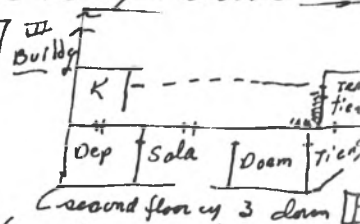 III
Building
K
Dep Sala Doem Tien
second floor up 3 down